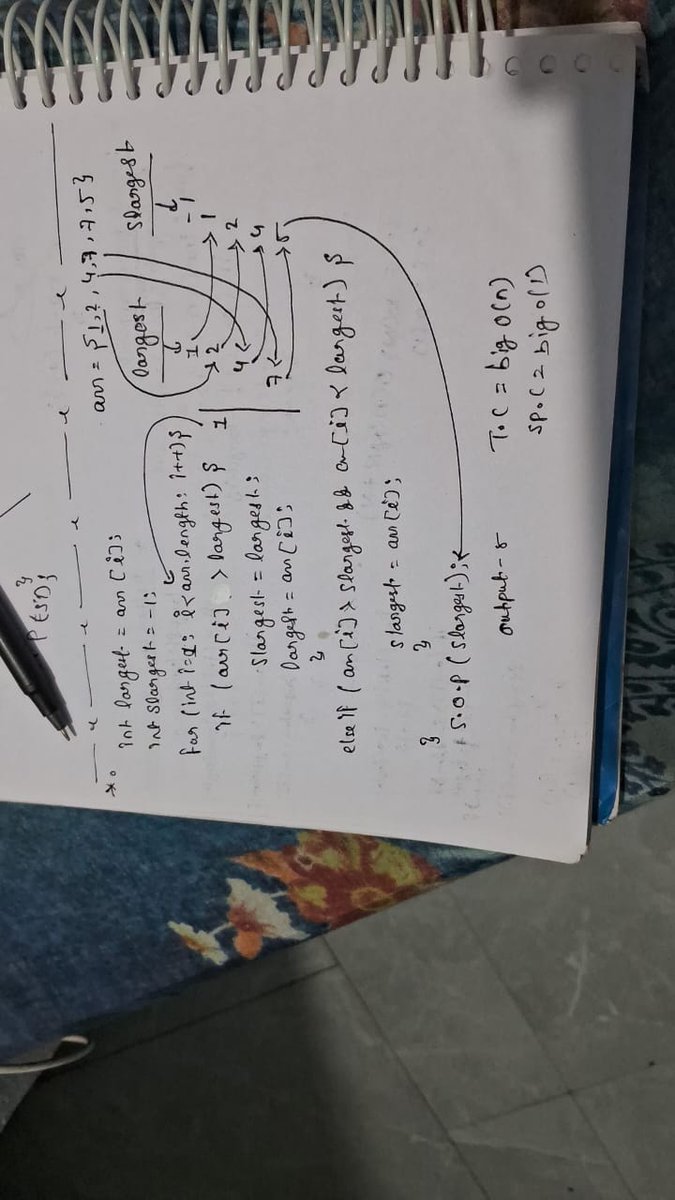 P(st);
}
* int largest = arr [i];
int slargest = -1;
for (int i=1; i<arr.length; i++){
if (arr[i] > largest) {
slargest = largest;
largest = arr[i];
}
else if (arr[i] > slargest && arr[i] < largest) {
slargest = arr[i];
}
}
S.O.P (slargest);
output - 5
arr = {1,2,4,7,7,5}
largest slargest
1 -1
2 1
4 2
7 4
5
T.C = big O(n)
SP.C = big O(1)